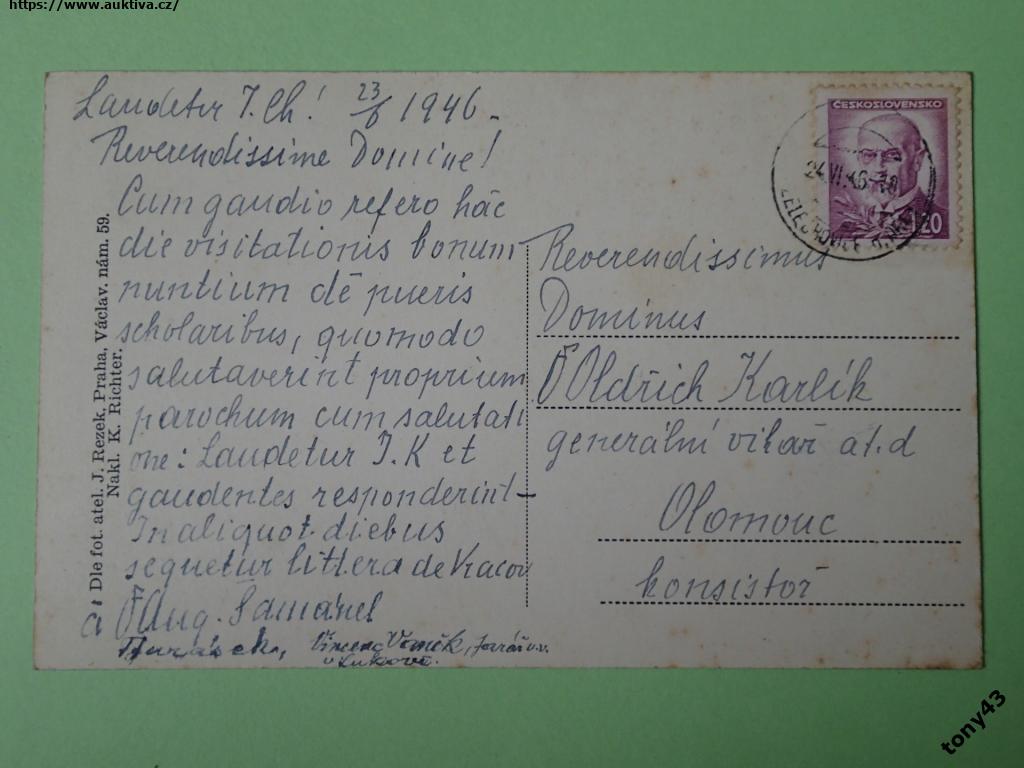 https://www.auktiva.cz/
Laudetur J. Ch! 23/6 1946.
Reverendissime Domine!
Cum gaudio refero hác
die visitationis bonum
nuntium dē pueris
scholaribus, quomodo
salutaverint proprium
parochum cum salutati
one: Laudetur J. K et
gaudentes responderint-
In aliquot diebus
sequetur littera de
Aug.
v.v.
Dle fot. atel. J. Rezek, Praha, Václav. nám. 59.
Nakl. K. Richter.
ČESKOSLOVENSKO
120
24.VI.46-18
Reverendissimus
Dominus
Oldřich Karlík
generální vikář a t. d
Olomouc
konsistoř
tony43